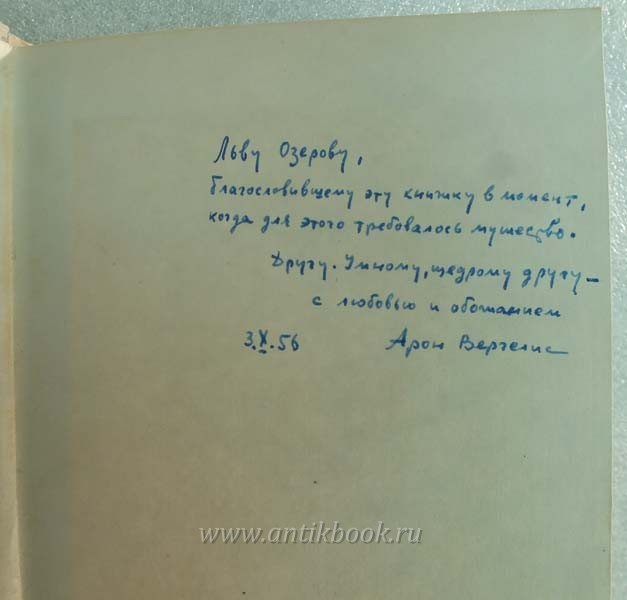 Льву Озерову,
благословившему эту книжку в момент,
когда для этого требовалось мужество.
Другу. Умному, щедрому другу –
с любовью и обожанием
3.X.56 Арон Вергелис
www.antikbook.ru